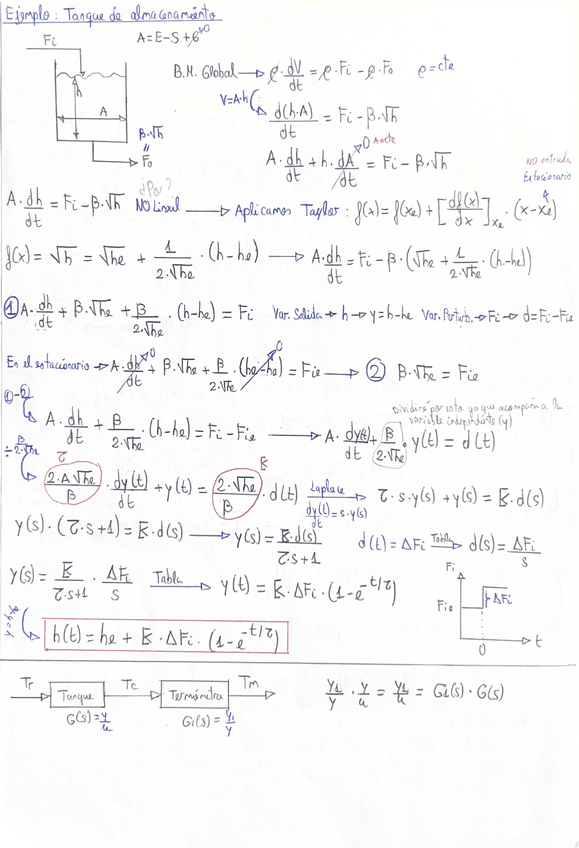 Ejemplo: Tanque de almacenamiento
A=E-S+G→0
Fi
h
A
β·√h
=
Fo
B.M. Global → ρ·dV/dt = ρ·Fi - ρ·Fo   ρ=cte
V=A·h
d(h·A)/dt = Fi - β·√h
A·dh/dt + h·dA/dt = Fi - β·√h
0 A=cte
A·dh/dt = Fi - β·√h   ¿Por? NO Lineal → Aplicamos Taylor: f(x) = f(xe) + [df(x)/dx]xe · (x-xe)
NO entrada
Estacionario
f(x) = √h = √he + 1/(2·√he) · (h-he) → A·dh/dt = Fi - β·(√he + 1/(2·√he)·(h-he))
① A·dh/dt + β·√he + β/(2·√he) · (h-he) = Fi   Var. Salida → h → y=h-he   Var. Perturb. → Fi → d=Fi-Fie
En el estacionario → A·dh/dt→0 + β·√he + β/(2·√he) · (he-he)→0 = Fie → ② β·√he = Fie
①-②
A·dh/dt + β/(2·√he) · (h-he) = Fi - Fie → A·dy(t)/dt + β/(2·√he) · y(t) = d(t)
Dividiré por esta ya que acompaña a la
variable independiente (y)
÷ β/(2·√he)
τ
K
2·A·√he/β · dy(t)/dt + y(t) = 2·√he/β · d(t)   Laplace → τ·s·y(s) + y(s) = K·d(s)
dy(t)/dt = s·y(s)
y(s)·(τ·s+1) = K·d(s) → y(s) = K·d(s)/(τ·s+1)   d(t) = ΔFi   Tabla → d(s) = ΔFi/s
y(s) = K/(τ·s+1) · ΔFi/s   Tabla → y(t) = K·ΔFi·(1-e^(-t/τ))
Fi
Fie
ΔFi
0
t
y=h-he
h(t) = he + K·ΔFi·(1-e^(-t/τ))
Tr → Tanque → Tc → Termómetro → Tm
G(s)=y/u
G1(s)=y1/y
y1/y · y/u = y1/u = G1(s)·G(s)